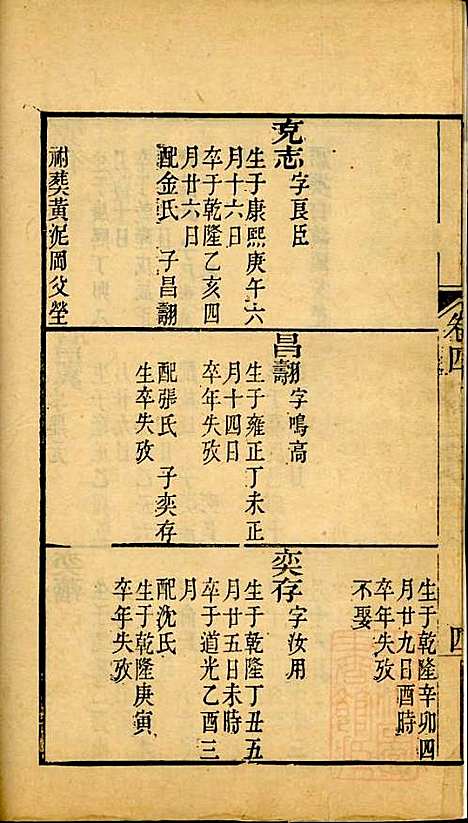 克志 字良臣
生于康熙庚午六
月十六日
卒于乾隆乙亥四
月廿六日
配金氏 子昌翿
祔葬黃泥岡父塋
昌翿 字鳴高
生于雍正丁未正
月十四日
卒年失攷
配張氏 子奕存
生卒失攷
生于乾隆辛卯四
月廿九日酉時
卒年失攷
不娶
奕存 字汝用
生于乾隆丁丑五
月廿五日未時
卒于道光乙酉三
月
配沈氏
生于乾隆庚寅
卒年失攷
卷四
四